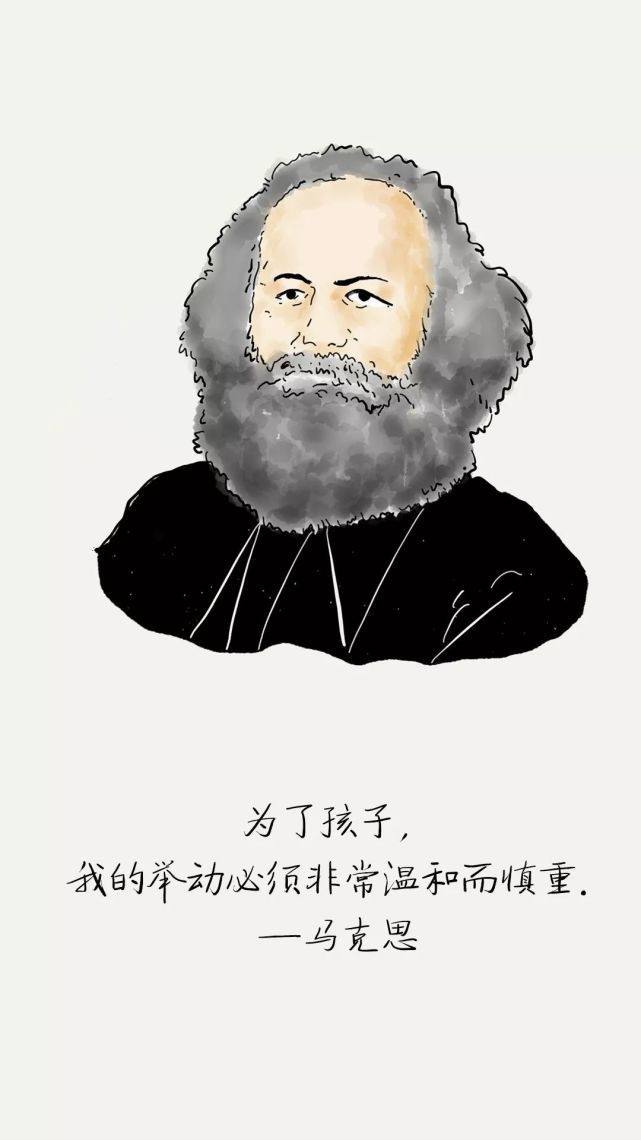 为了孩子,
我的举动必须非常温和而慎重.
—马克思